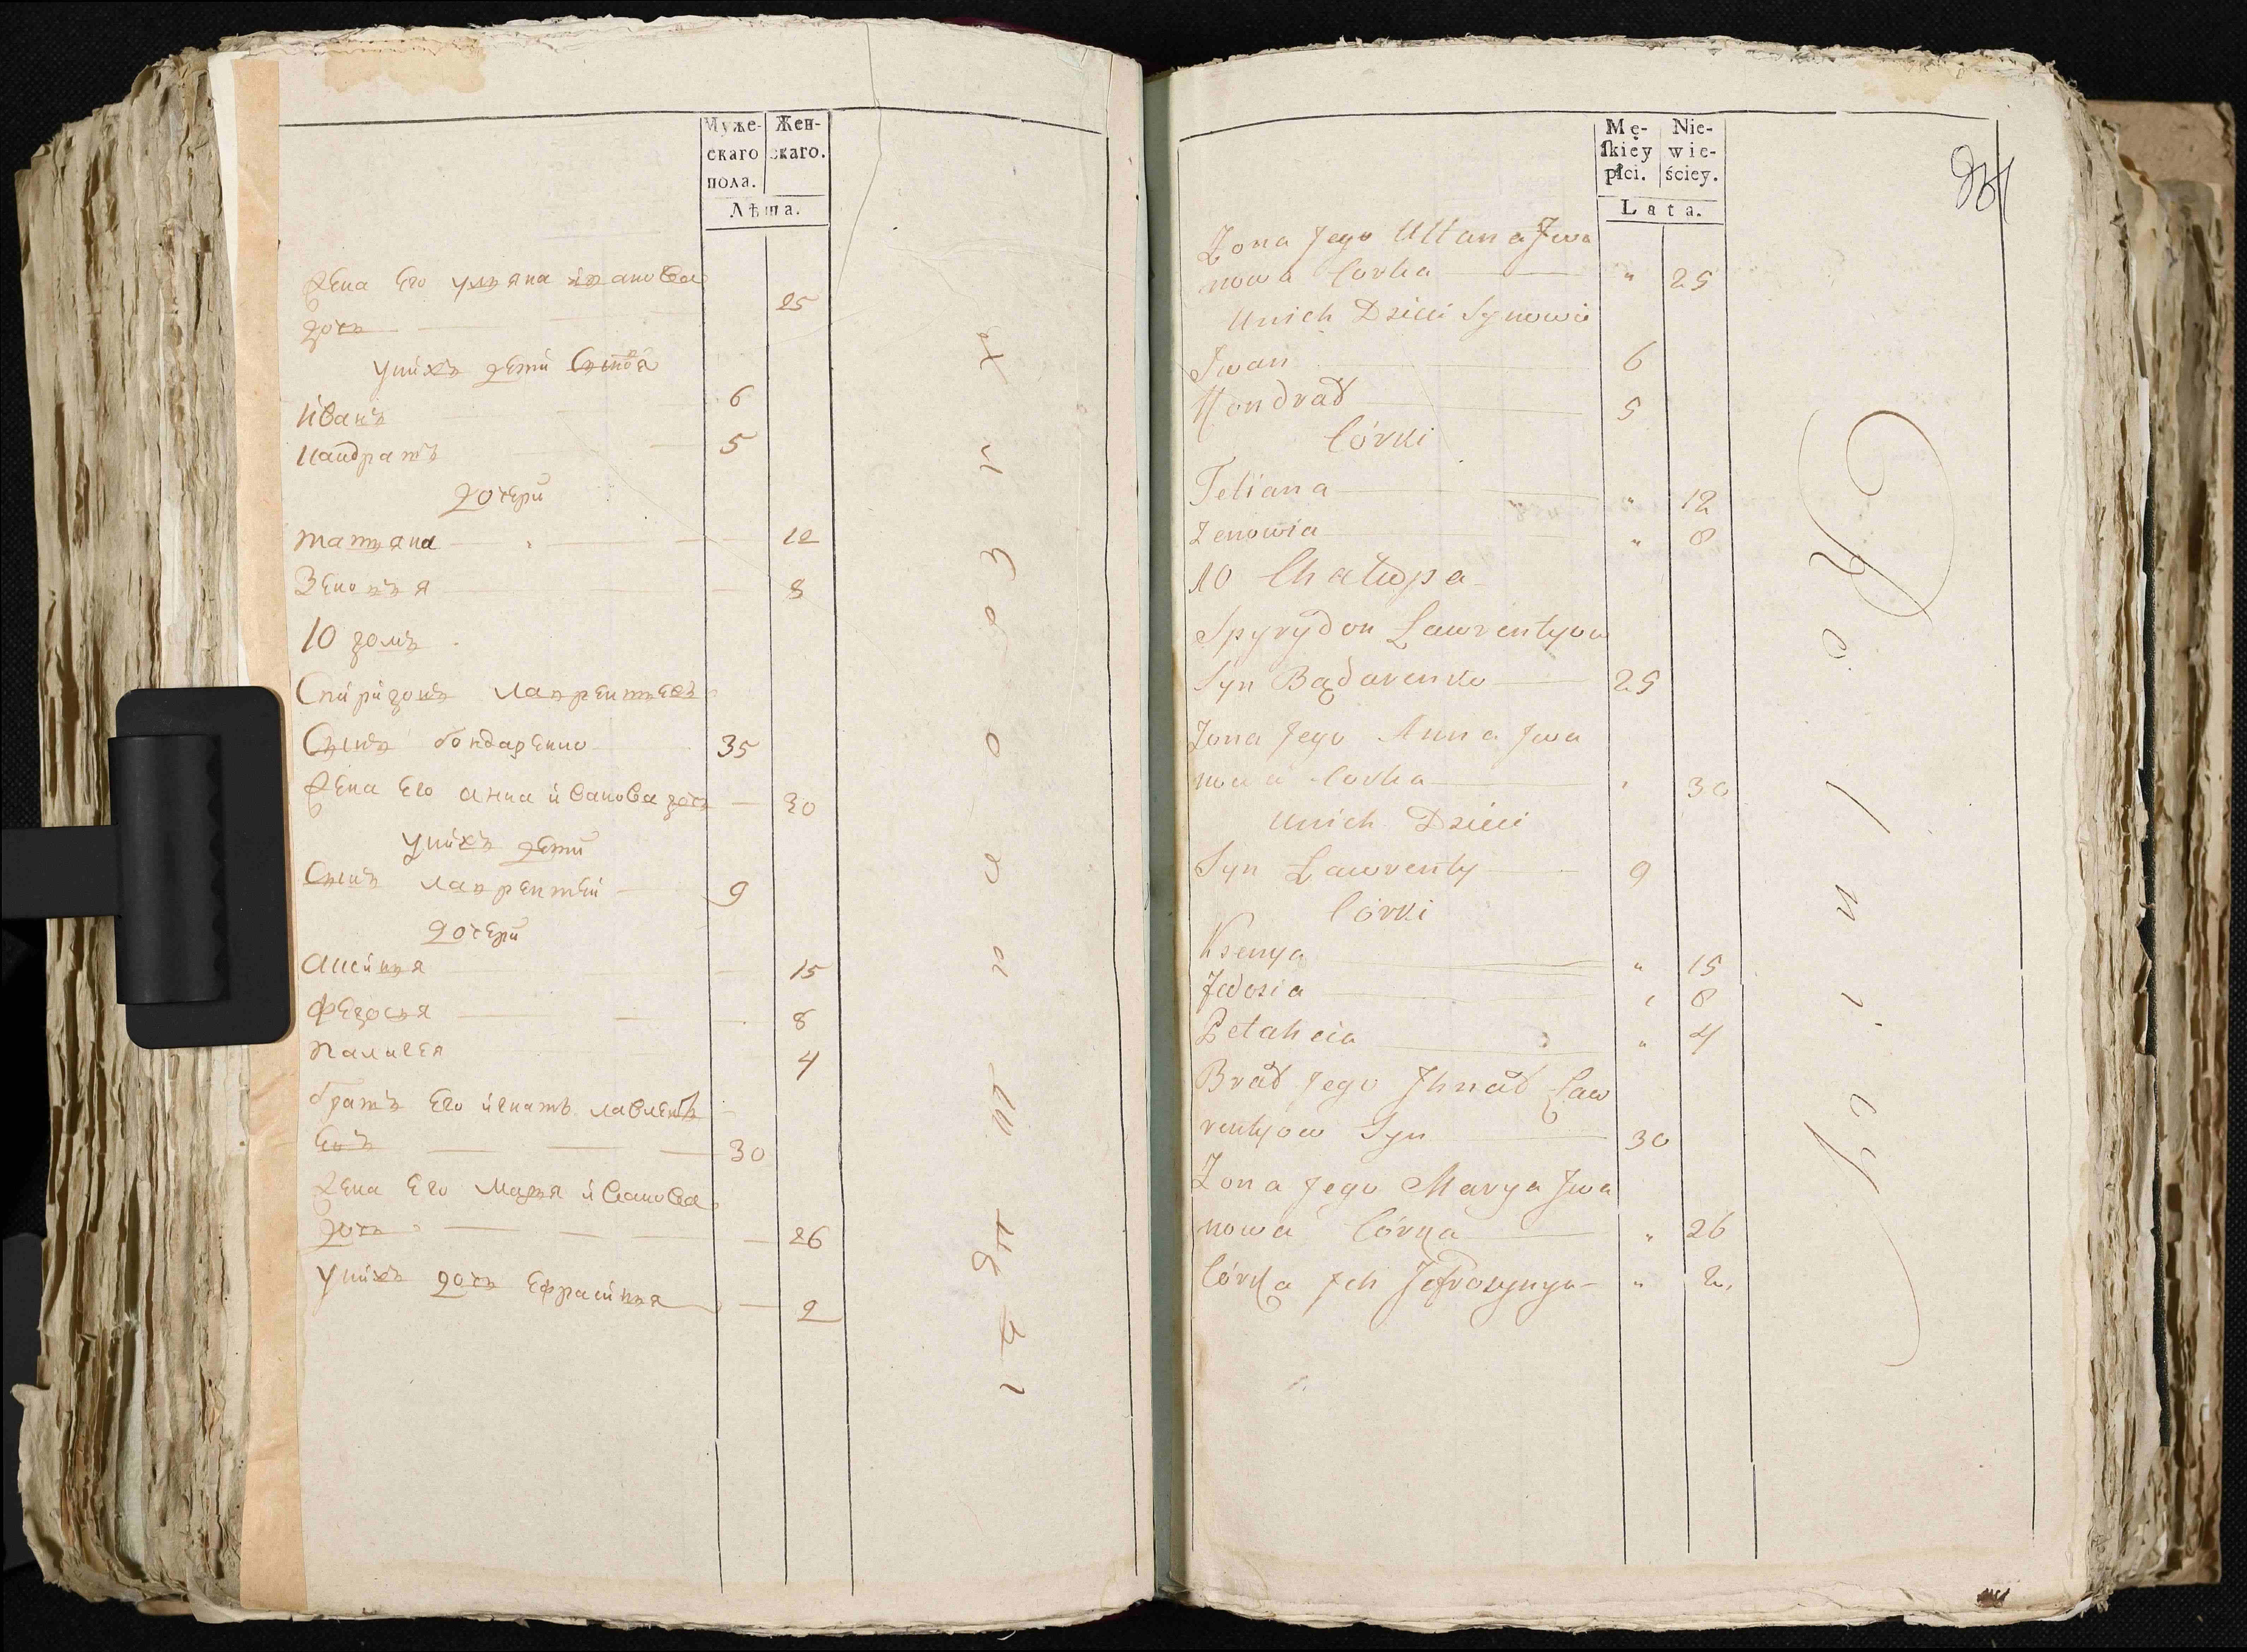 Муже-
скаго
пола.
Жен-
скаго.
Лѣта.
жена его ульяна ивановa
дочь 25
у нихъ дети сыновя
иванъ 6
кандратъ 5
дочери
татяна 12
Зеновья 8
10 домъ
Спиридонъ лаврентьевъ
Сынъ бондаренко 35
жена его анна иванова дочь 30
у нихъ дети
Сынъ лаврентий 9
дочери
аксинья 15
федосья 8
палагея 4
братъ его игнатъ лаврентъ
евъ 30
жена его марья иванова
дочь 26
у нихъ дочь ефросинья 2
Mę-
skiey
płci.
Nie-
wie-
ściey.
Lata.
Żona Jego Ullana Jwa
nowa Corka " 25
Unich Dzieci Synowie
Jwan 6
Kondrad 5
Córki
Teliana " 12
Zenowia " 8
10 Chałupa
Spyrydon Ławrentyow
Syn Bądarenko 25
Żona Jego Anna Jwa
nowa Corka " 30
Unich Dzieci
Syn Ławrenty 9
Córki
Ksenya " 15
Fedosia " 8
Pelaheia " 4
Brad Jego Jhnad Ław
rentyow Syn 30
Żona Jego Marya Jwa
nowa Córka " 26
Córka Jch Jefrosynya " 2.